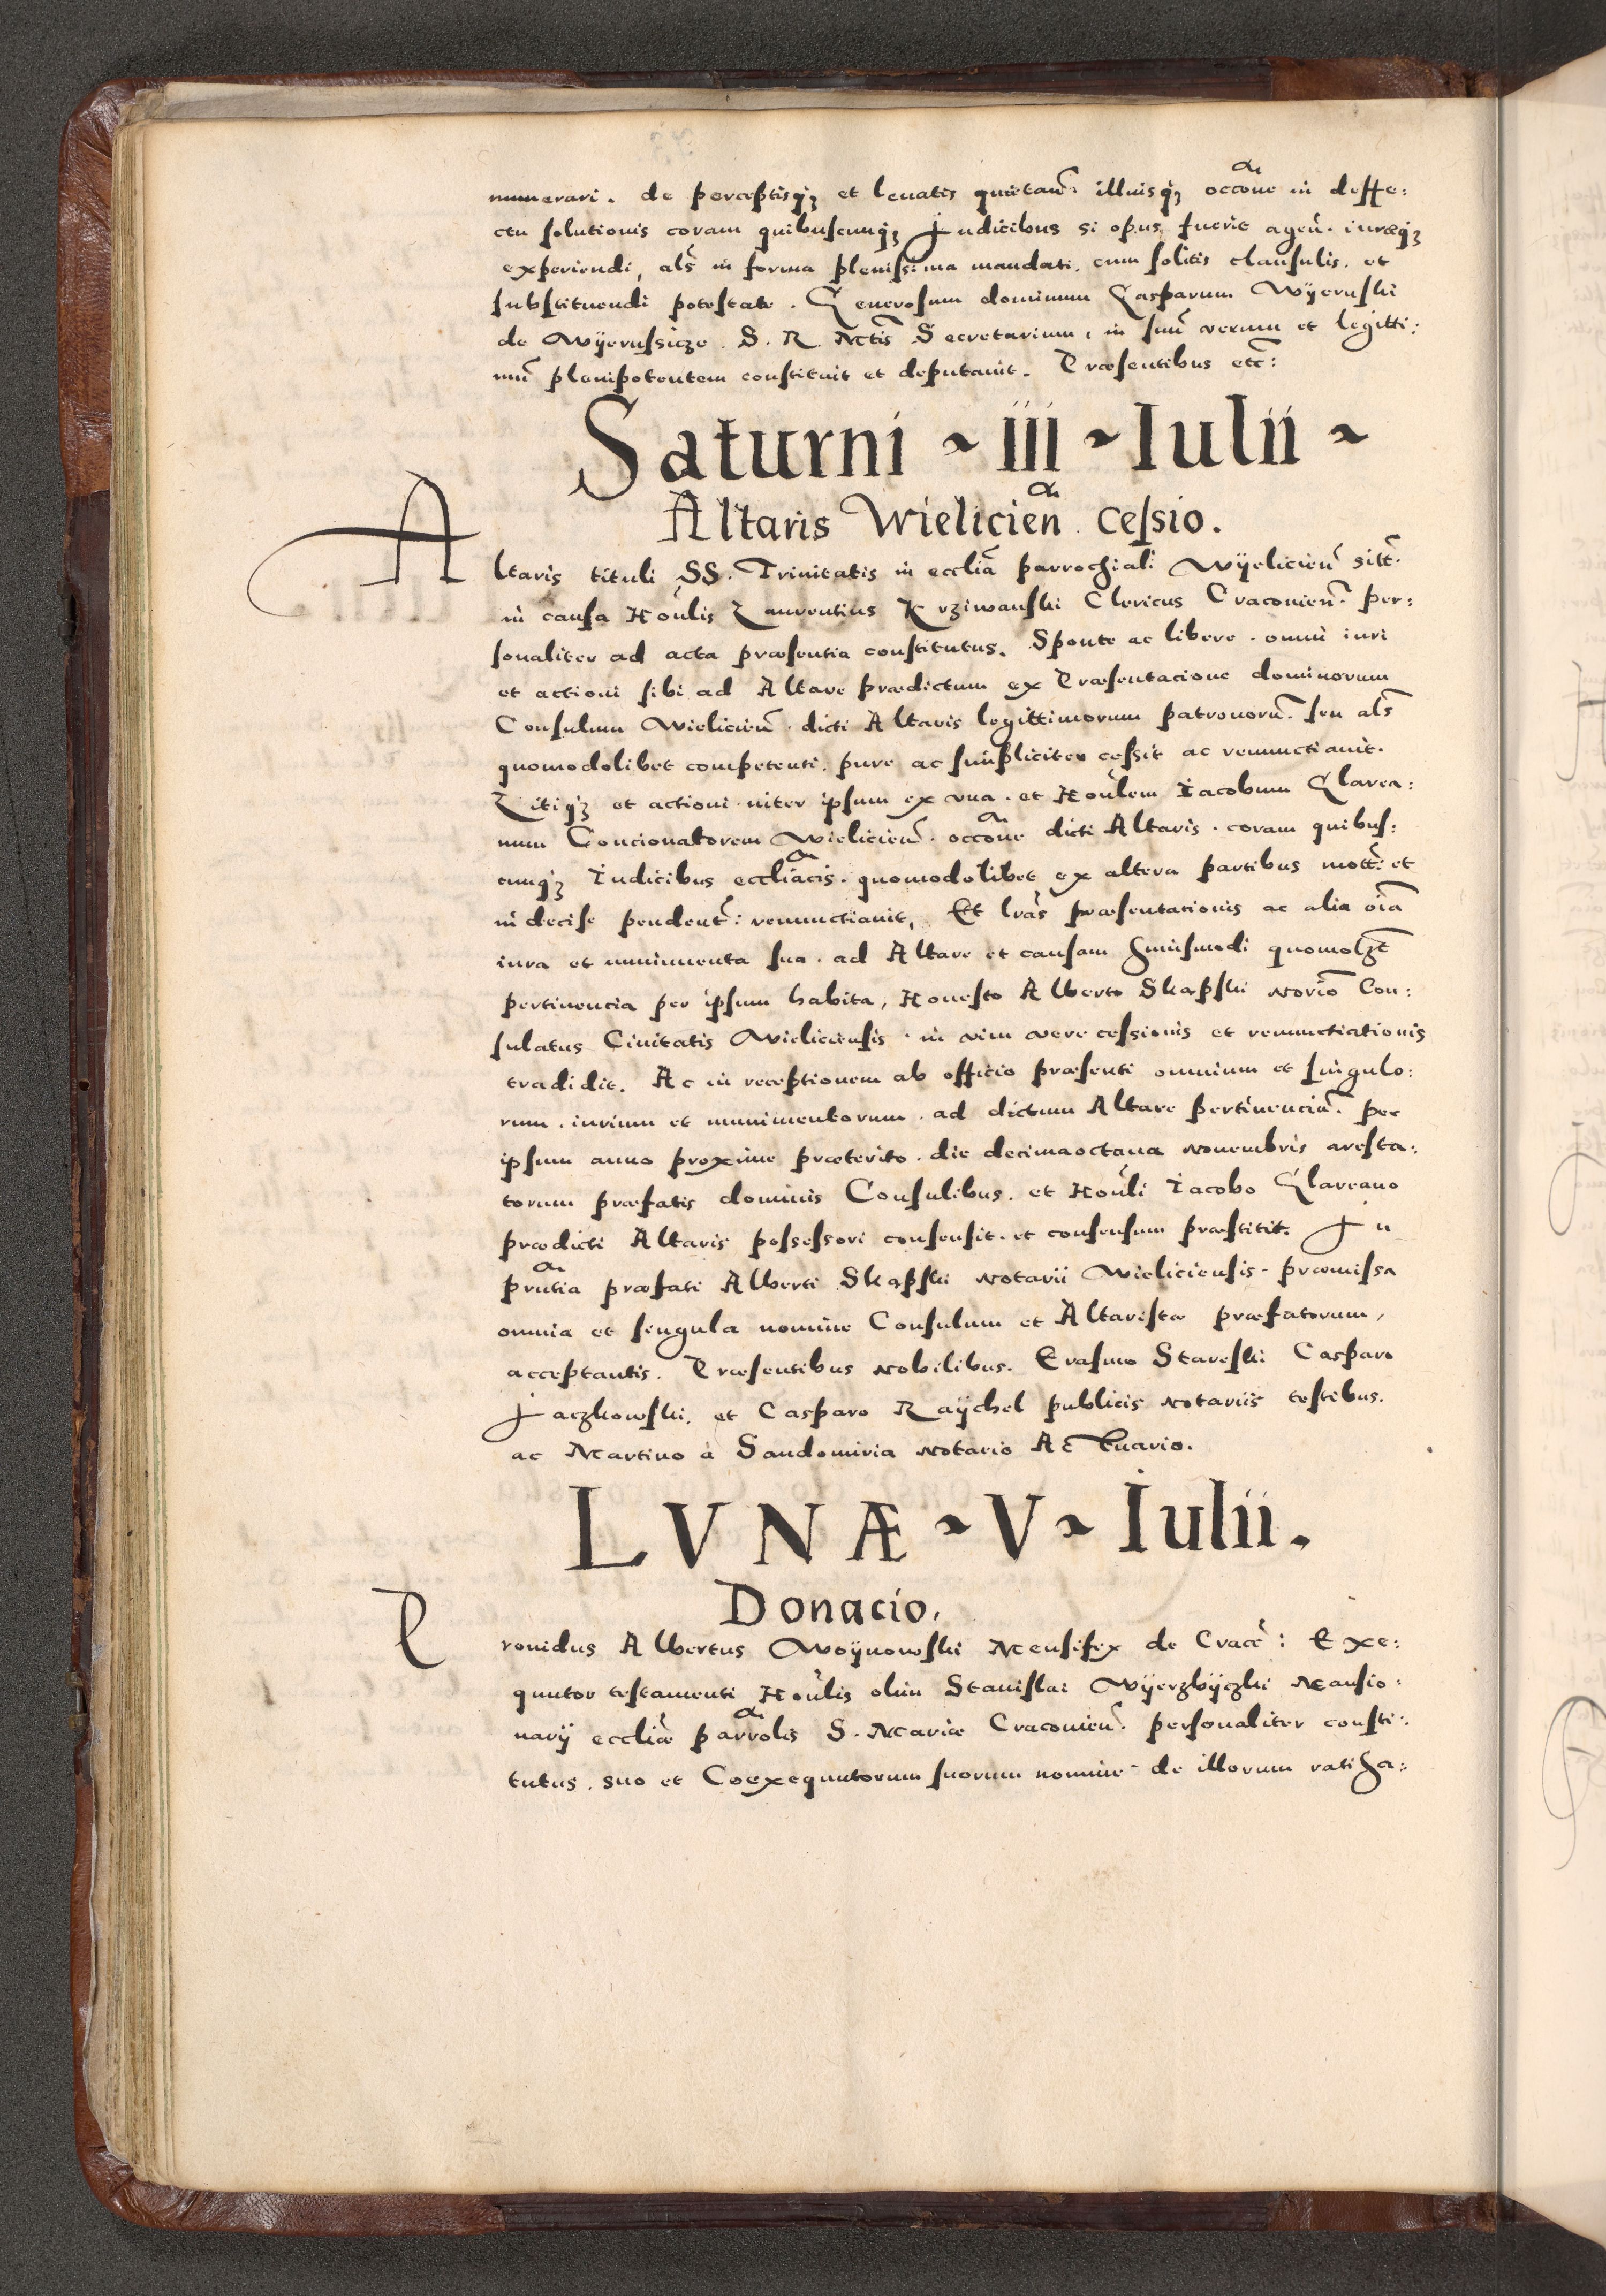 numerari. de perceptisq́ꝫ et leuatis quietañ: illiusq́ꝫ occõne in deffe:
ctu solutionis coram quibuscunq́ꝫ Judicibus si opus fuerit ageñ. iureq́ꝫ
experiendi, als̃ in forma plenissima mandati. cum solitis clausulis. et
substituendi potestate. Generosum dominum Gasparum Wÿeruski
de Wÿerussicze. S. R. Mtis̃ Secretarium, in suũ verum et legitti:
mũ plenipotentem constituit et deputauit. Præsentibus etc̃:
Saturni ~ iii ~ Iulii ~
Altaris Wielicień. Cessio.
Altaris tituli SS. Trinitatis in ecclia parrochiali Wÿelicień sitt̃.
in causa Hon̄lis Laurentius Krziwanski Clericus Cracovień. per:
sonaliter ad acta præsentia constitutus. Sponte ac libere. omni iuri
et actioni sibi ad Altare prædictum ex Præsentacione dominorum
Consulum Wielicień. dicti Altaris legittimorum patronorũ. seu als̃
quomodolibet competenti. pure ac simpliciter cessit ac renunctiauit.
Litiq́ꝫ et actioni inter ipsum ex vna. et Honl̃em Iacobum Glarea:
num Concionatorem Wielicień. occõne dicti Altaris. coram quibus:
cunq́ꝫ Iudicibus eccliacis. quomodolibet ex altera partibus mott̃: et
indecise pendent̃: renunctiauit, Et lras̃ præsentationis ac alia oĩa
iura et munimenta sua. ad Altare et causam huiusmodi quomolꝫt̃
pertinencia per ipsum habita, Honesto Alberto Skapski norio̅ Con:
sulatus Ciuitatis Wieliciensis. in vim vere cessionis et renunctiationis
tradidit. Ac in receptionem ab officio præsenti omnium et singulo:
rum. iurium et munimentorum. ad dictum Altare pertinenciũ. per
ipsum anno proxime præterito. die decimaoctaua nouembris aresta:
torum præfatis dominis Consulibus. et Hon̄li Iacobo Glareano
prædicti Altaris possessori consensit. et consensum præstitit. In
pr̃ntia præfati Alberti Skapski notarii Wieliciensis. præmissa
omnia et sengula nomine Consulum et Altaristæ præfatorum,
acceptantis. Præsentibus nobilibus. Erasmo Stareski Casparo
Jaczkowski. et Casparo Raÿchel publicis notariis testibus.
ac Martino à Sandomiria notario Actuario.
LVNÆ ~ V ~ Iulii.
Donacio.
Prouidus Albertus Woÿnowski Mensifex de Crac̃: Exe:
quutor testamenti Hon̄lis olim Stanislai Wÿerzbÿczki Mansio:
narÿ eccliæ parrolis S. Mariæ Cracovień. personaliter consti:
tutus. suo et Coexequutorum suorum nomine de illorum ratiha: